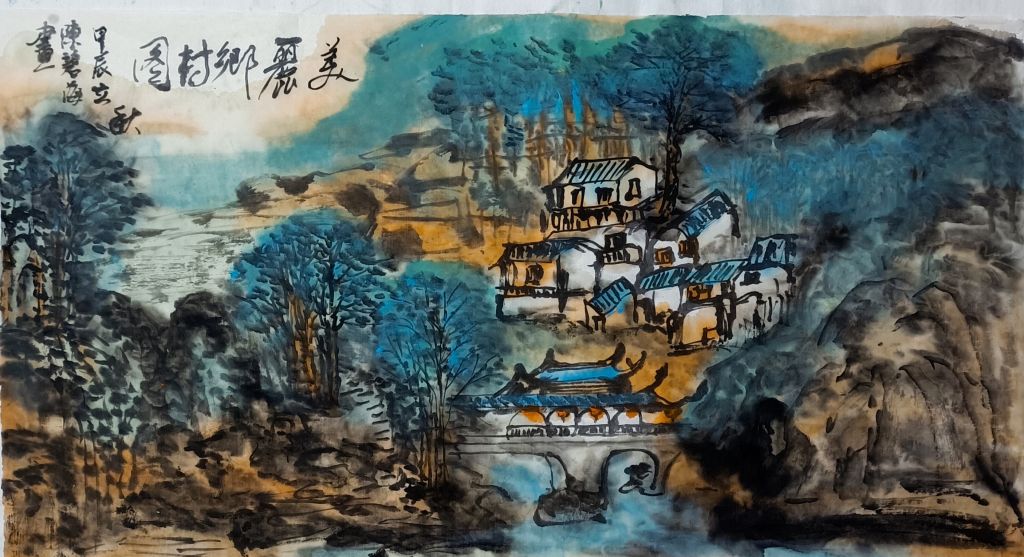 美麗鄉村图
甲辰立秋
陳碧海
畫